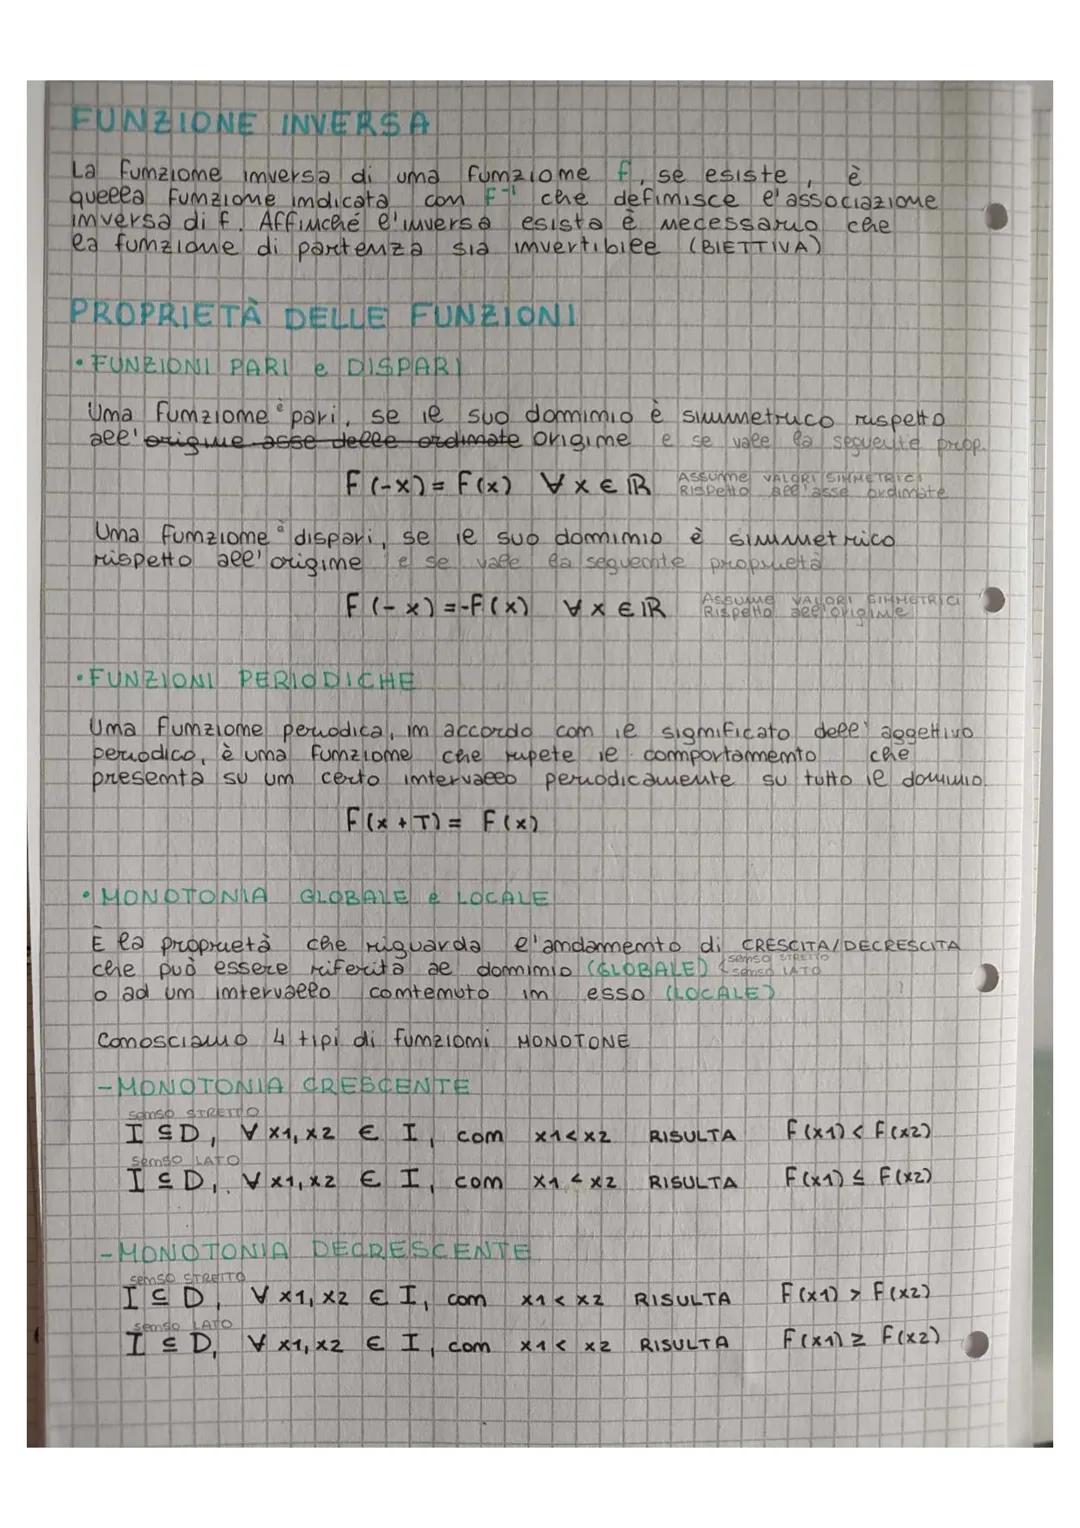 FUNZIONE INVERSA
La funzione inversa di una funzione f, se esiste, è
quella funzione indicata con F⁻¹ che definisce l'associazione
inversa di f. Affinché l'inversa esista è necessario che
la funzione di partenza sia invertibile (BIETTIVA)
PROPRIETÀ DELLE FUNZIONI
• FUNZIONI PARI e DISPARI
Una Funzione è pari, se il suo dominio è simmetrico rispetto
all' origine asse delle ordinate origine e se vale la seguente prop.
F(-x) = F(x) ∀ x ∈ ℝ ASSUME VALORI SIMMETRICI
RISPETTO all'asse ordinate
Una funzione è dispari, se il suo dominio è simmetrico
rispetto all' origine e se vale la seguente proprietà
F(-x) = -F(x) ∀ x ∈ ℝ ASSUME VALORI SIMMETRICI
Rispetto all'origine
• FUNZIONI PERIODICHE
Una Funzione periodica, in accordo con il significato dell' aggettivo
periodico, è una funzione che ripete il comportamento che
presenta su un certo intervallo periodicamente su tutto il dominio.
F(x + T) = F(x)
• MONOTONIA GLOBALE e LOCALE
È la proprietà che riguarda l'andamento di CRESCITA/DECRESCITA
che può essere riferita al dominio (GLOBALE) { senso STRETTO
senso LATO
o ad un intervallo contenuto in esso (LOCALE)
Conosciamo 4 tipi di funzioni MONOTONE
- MONOTONIA CRESCENTE
senso STRETTO
I ⊆ D, ∀ x1, x2 ∈ I, con x1 < x2 RISULTA F(x1) < F(x2)
senso LATO
I ⊆ D, ∀ x1, x2 ∈ I, con x1 < x2 RISULTA F(x1) ≤ F(x2)
- MONOTONIA DECRESCENTE
senso STRETTO
I ⊆ D, ∀ x1, x2 ∈ I, con x1 < x2 RISULTA F(x1) > F(x2)
senso LATO
I ⊆ D, ∀ x1, x2 ∈ I, con x1 < x2 RISULTA F(x1) ≥ F(x2)